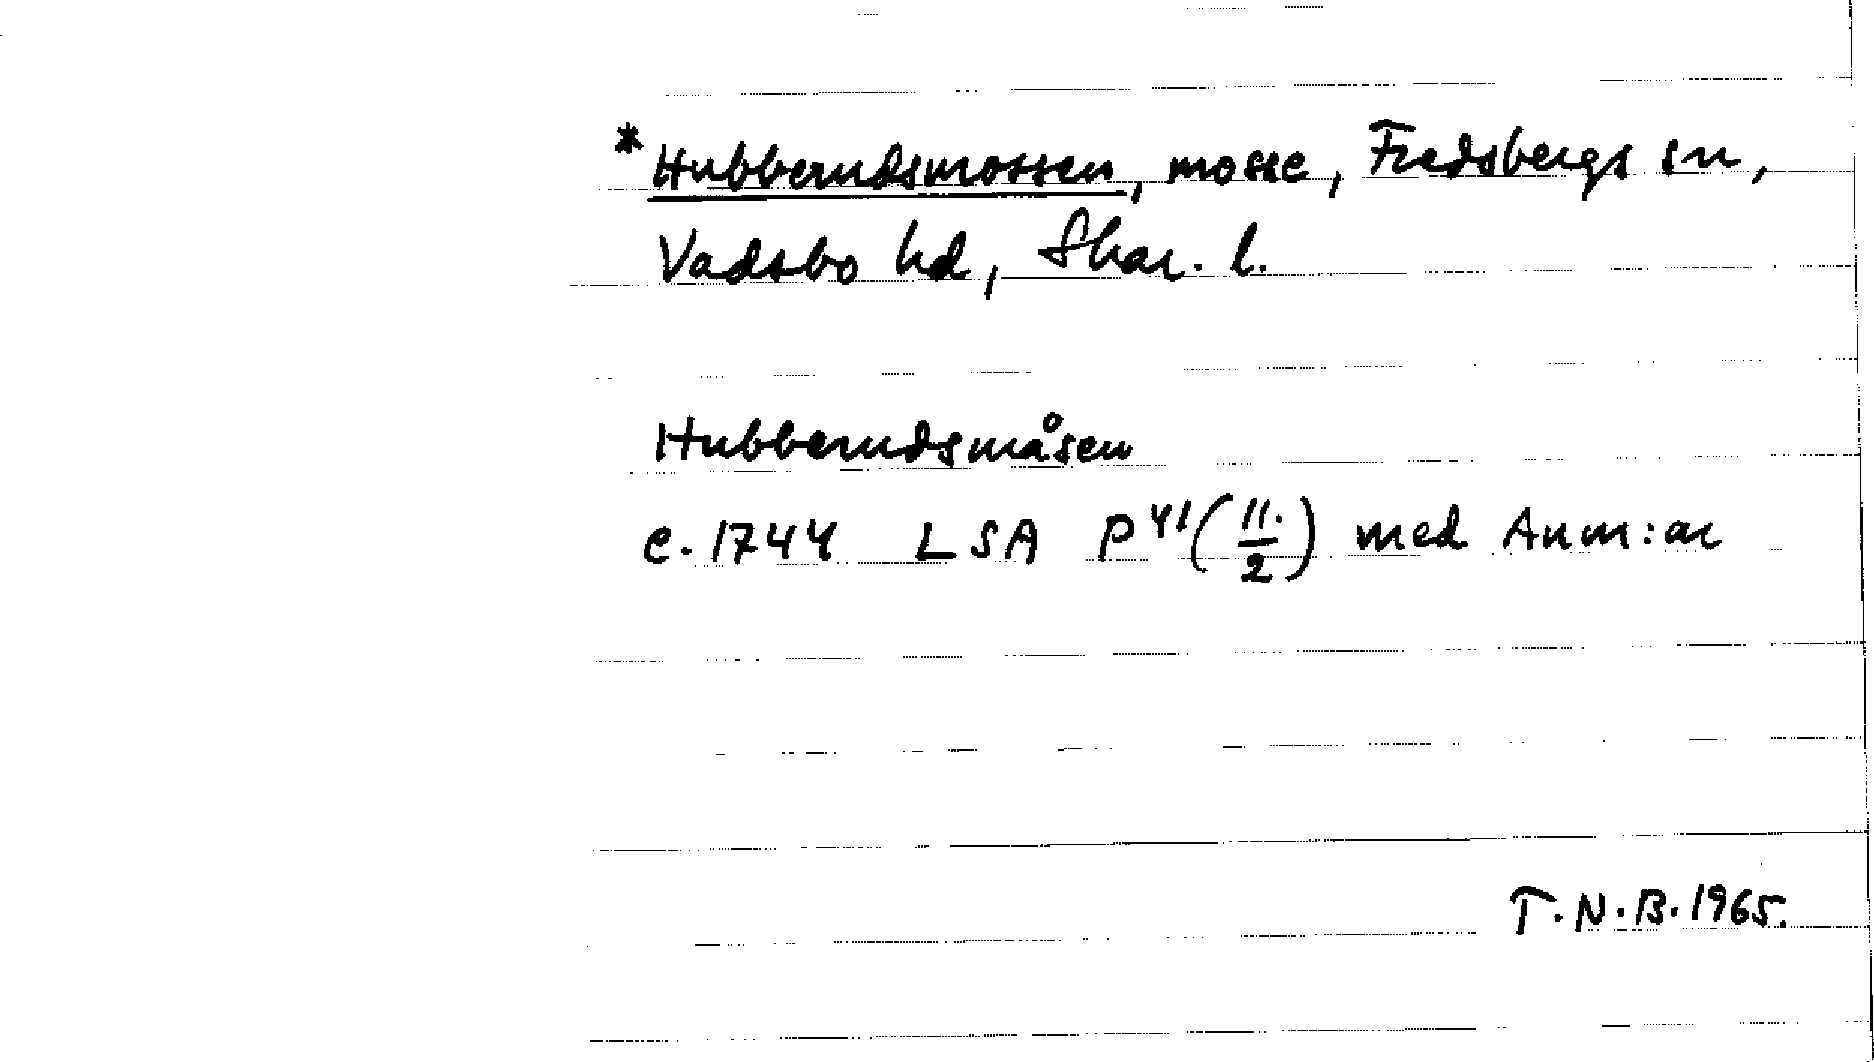 *Hubberudsmossen, mosse, Fredsbergs sn,
Vadsbo hd, Skar. l.
Hubberudsmåsen
c. 1744 LSA P 41 (11./2) med Anm:ar
T.N.B. 1965.